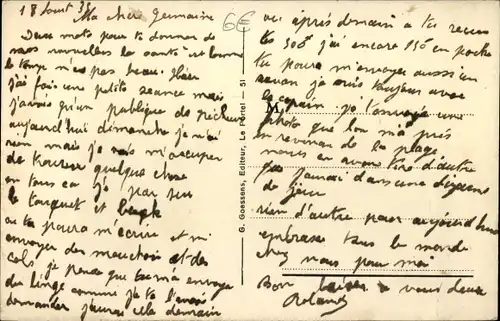 18 Aout 3
Ma cher Germaine
6€
Deux mots pour te donner de
mes nouvelles la santé est bonne
le temps n'es pas beau. Hier
j'ai fais une petite seance mais
j'avais qu'un publique de
aujourd'hui dimanche je n'ai
rien mais je vais m'occuper
de trouver quelque chose
en tous ca je par sur
le touquet et berck
tu poura m'écrire et mi
envoyer des mouchoirs et des
cols je pense que tu ma envoyé
du linge comme je te l'avais
demander j'aurai cela demain
G. Goessens, Editeur, Le Portel - 51
M
ou après demain a tu recus
les 300f j'ai encore 150f en poche
tu pour m'envoyer aussi un
savon je suis toujours avec
le copain je t'envoye une
photo que lon m'a pris
en revenan de la plage
nous en avons tiré d'autre
que j'aurai dans une dizaine
de jour
rien d'autre pour aujourd'hui
embrasse tous le monde
chez nous pour moi
Bon baiser a vous deux
Roland